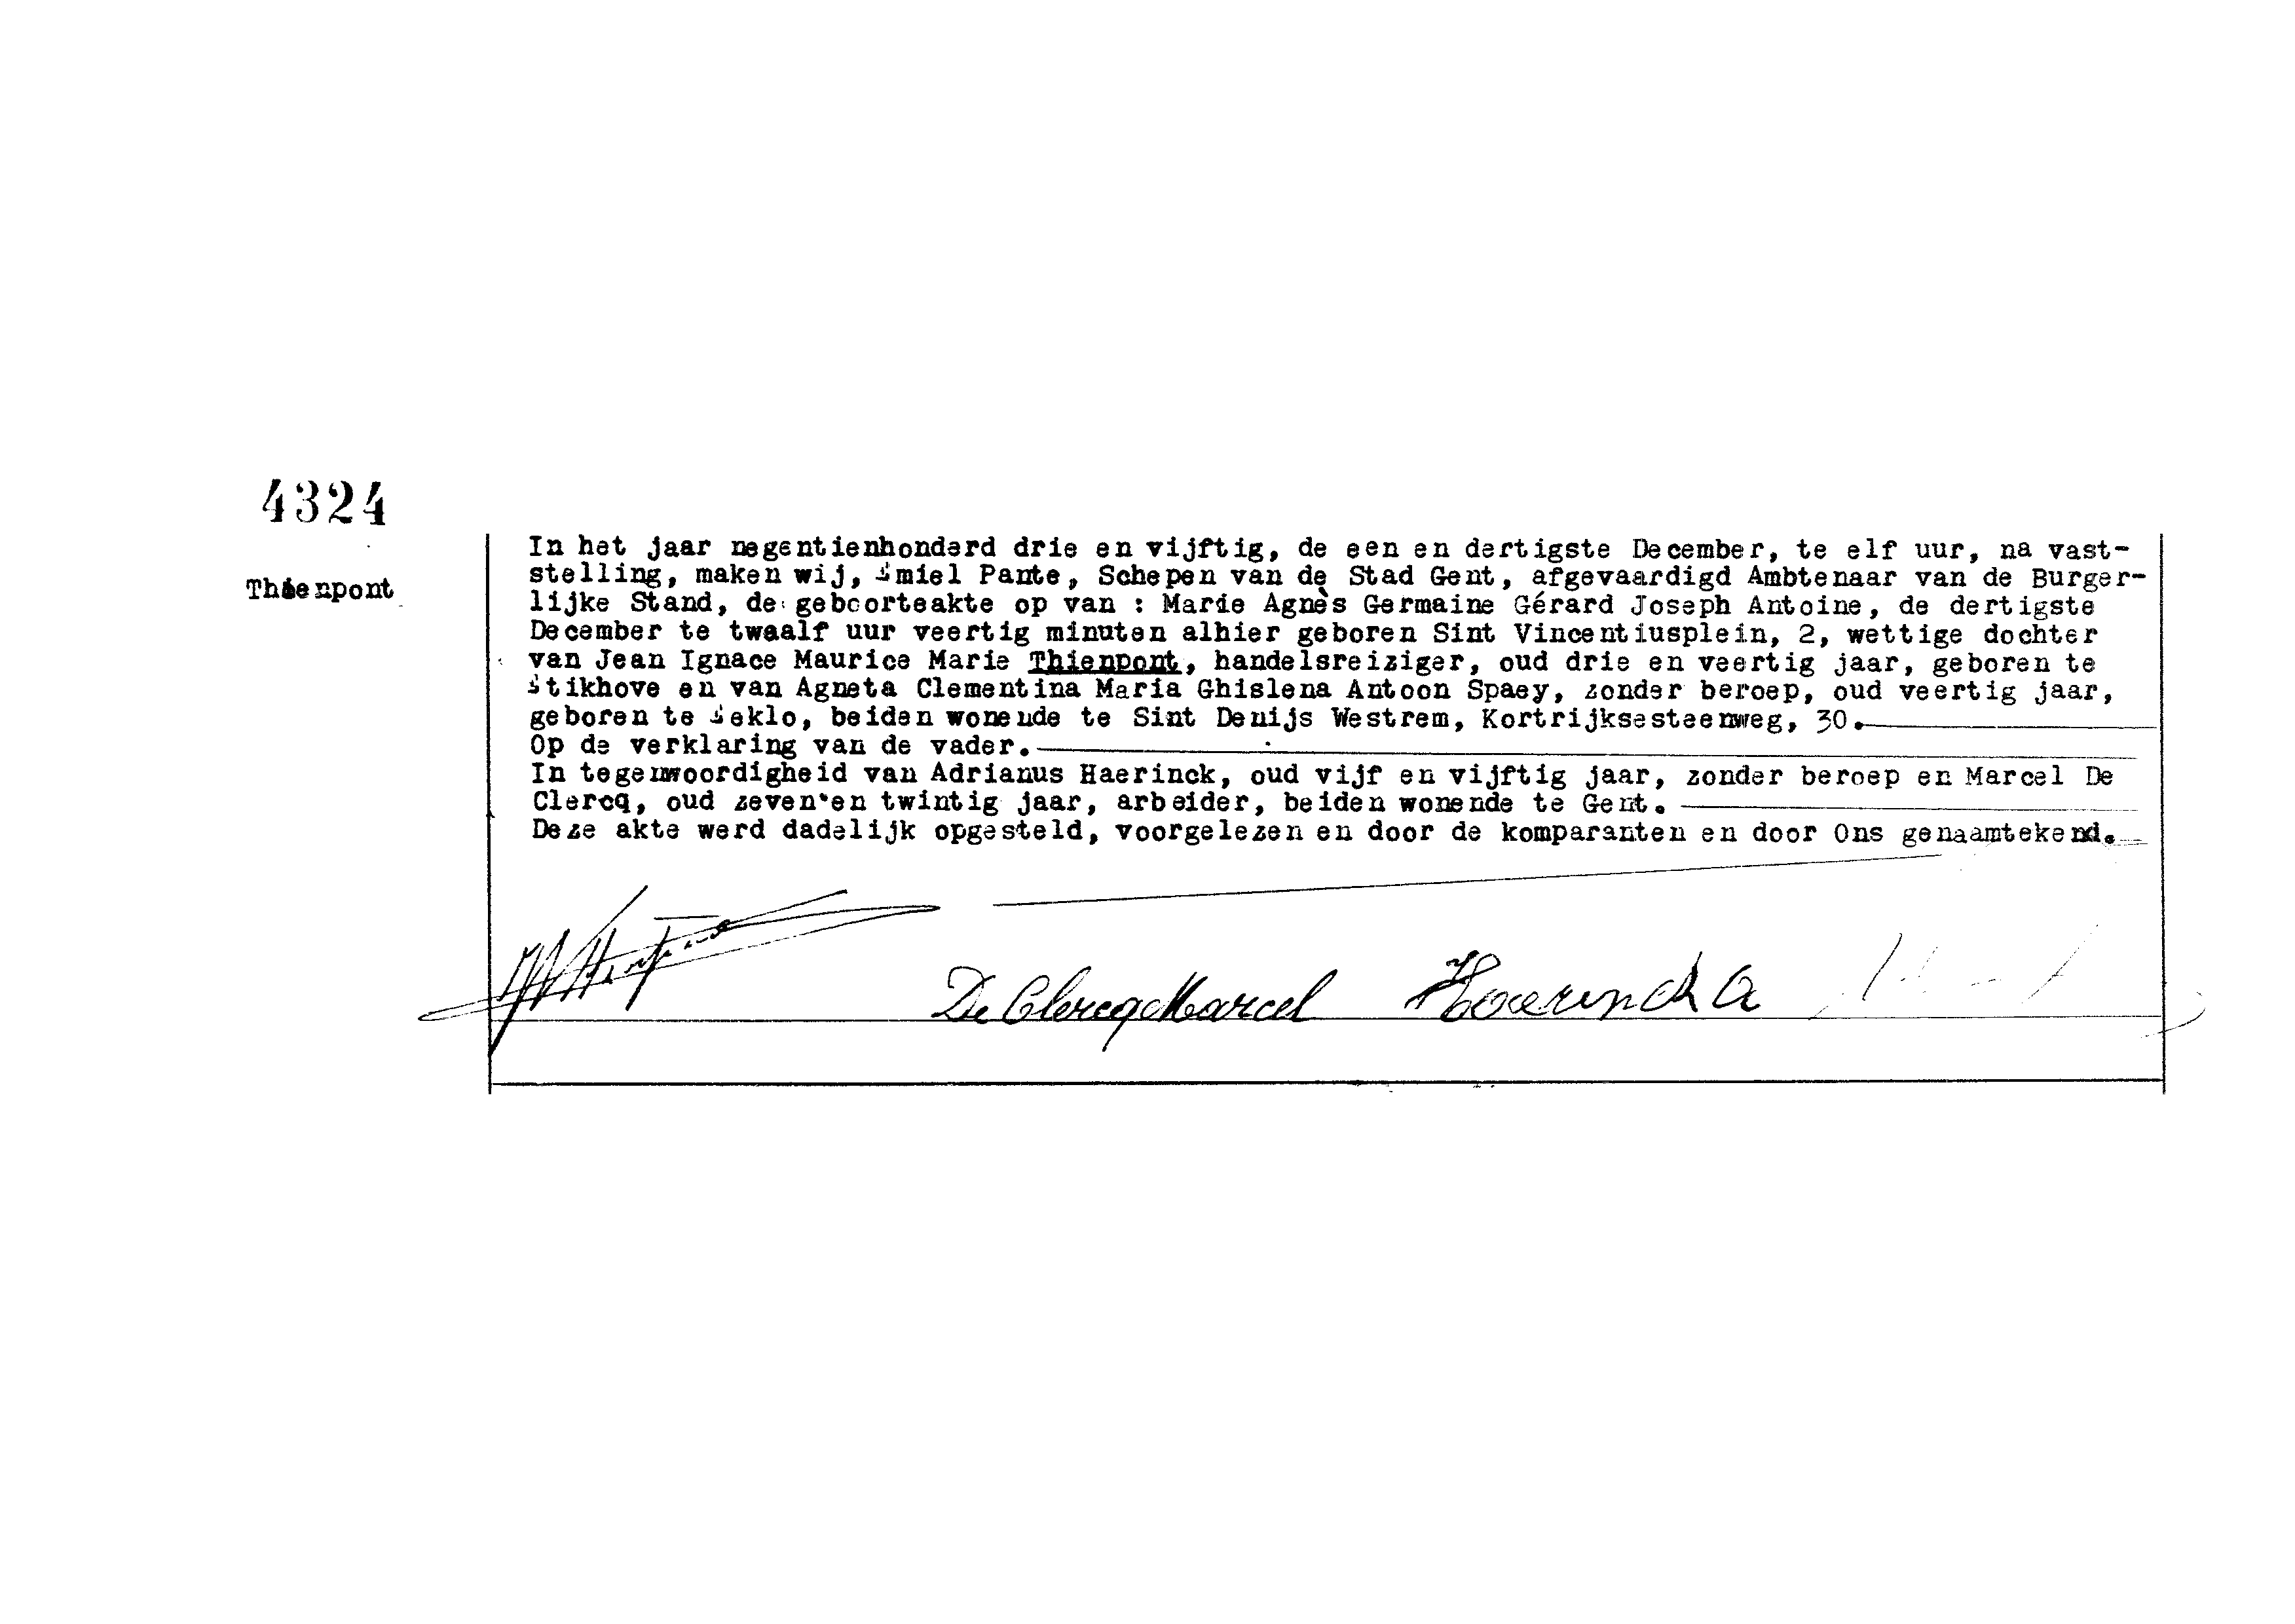 4324
Thienpont
In het jaar negentienhonderd drie en vijftig, de een en dertigste December, te elf uur, na vast-
stelling, maken wij, Emiel Pante, Schepen van de Stad Gent, afgevaardigd Ambtenaar van de Burger-
lijke Stand, de geboorteakte op van : Marie Agnès Germaine Gérard Joseph Antoine, de dertigste
December te twaalf uur veertig minuten alhier geboren Sint Vincentiusplein, 2, wettige dochter
van Jean Ignace Maurice Marie Thienpont, handelsreiziger, oud drie en veertig jaar, geboren te
Etikhove en van Agneta Clementina Maria Ghislena Antoon Spaey, zonder beroep, oud veertig jaar,
geboren te Eeklo, beiden wonende te Sint Denijs Westrem, Kortrijksesteenweg, 30.
Op de verklaring van de vader.
In tegenwoordigheid van Adrianus Haerinck, oud vijf en vijftig jaar, zonder beroep en Marcel De
Clercq, oud zeven en twintig jaar, arbeider, beiden wonende te Gent.
Deze akte werd dadelijk opgesteld, voorgelezen en door de komparanten en door Ons genaamtekend.
De Clercq Marcel Haerinck A